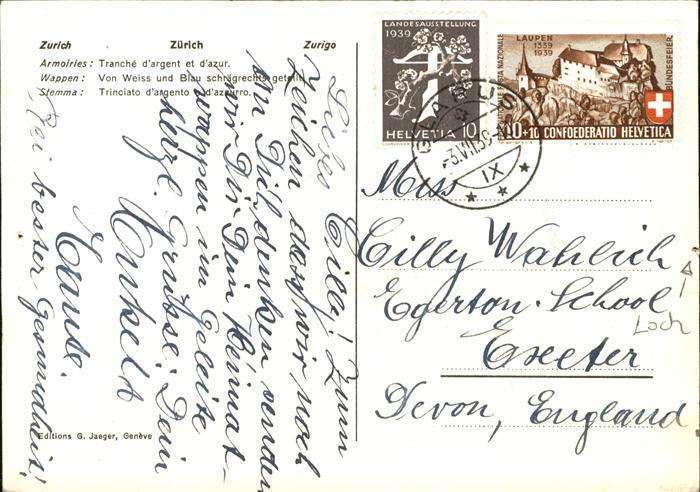 Zurich Zürich Zurigo
Armoiries: Tranché d'argent et d'azur.
Wappen: Von Weiss und Blau schrägrechts geteilt.
Stemma: Trinciato d'argento e d'azzurro.
Liebe Cilly! Zum
Zeichen dass wir noch
an Dich denken senden
wir Dir Dein Heimat-
wappen im Geleite
herzl. Grüsse. Dein
Tante
Bei bester Gesundheit!
Editions G. Jaeger, Genève
LANDESAUSSTELLUNG
1939
HELVETIA 10
LAUPEN
1339
1939
BUNDESFEIER
10+10 CONFOEDERATIO HELVETICA
GLARUS
IX
Miss
Cilly Wahlich
Egerton-School
Loch
Exeter
Devon, England